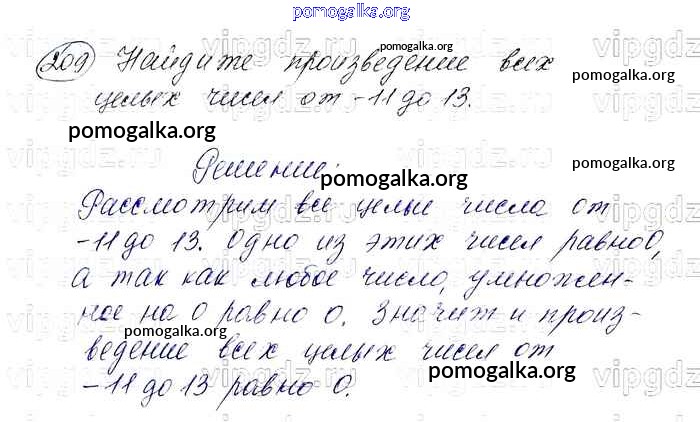 pomogalka.org
209 Найдите произведение всех
целых чисел от -11 до 13.
Решение:
Рассмотрим все целые числа от
-11 до 13. Одно из этих чисел равно 0,
а так как любое число, умножен-
ное на 0 равно 0. Значит и произ-
ведение всех целых чисел от
-11 до 13 равно 0.
pomogalka.org
pomogalka.org
pomogalka.org
pomogalka.org
pomogalka.org
pomogalka.org
pomogalka.org
pomogalka.org
pomogalka.org